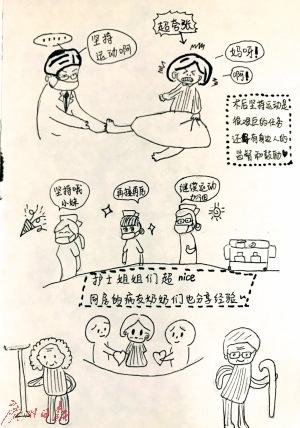 ……
坚持
运动啊
超夸张
妈呀!
啊!
术后坚持运动是
很艰巨的任务
还有身边人的
监督和鼓励
坚持哦
小妹
再接再厉
继续运动
加油
护士姐姐们超 nice
同房的病友奶奶们也分享经验
广州日报